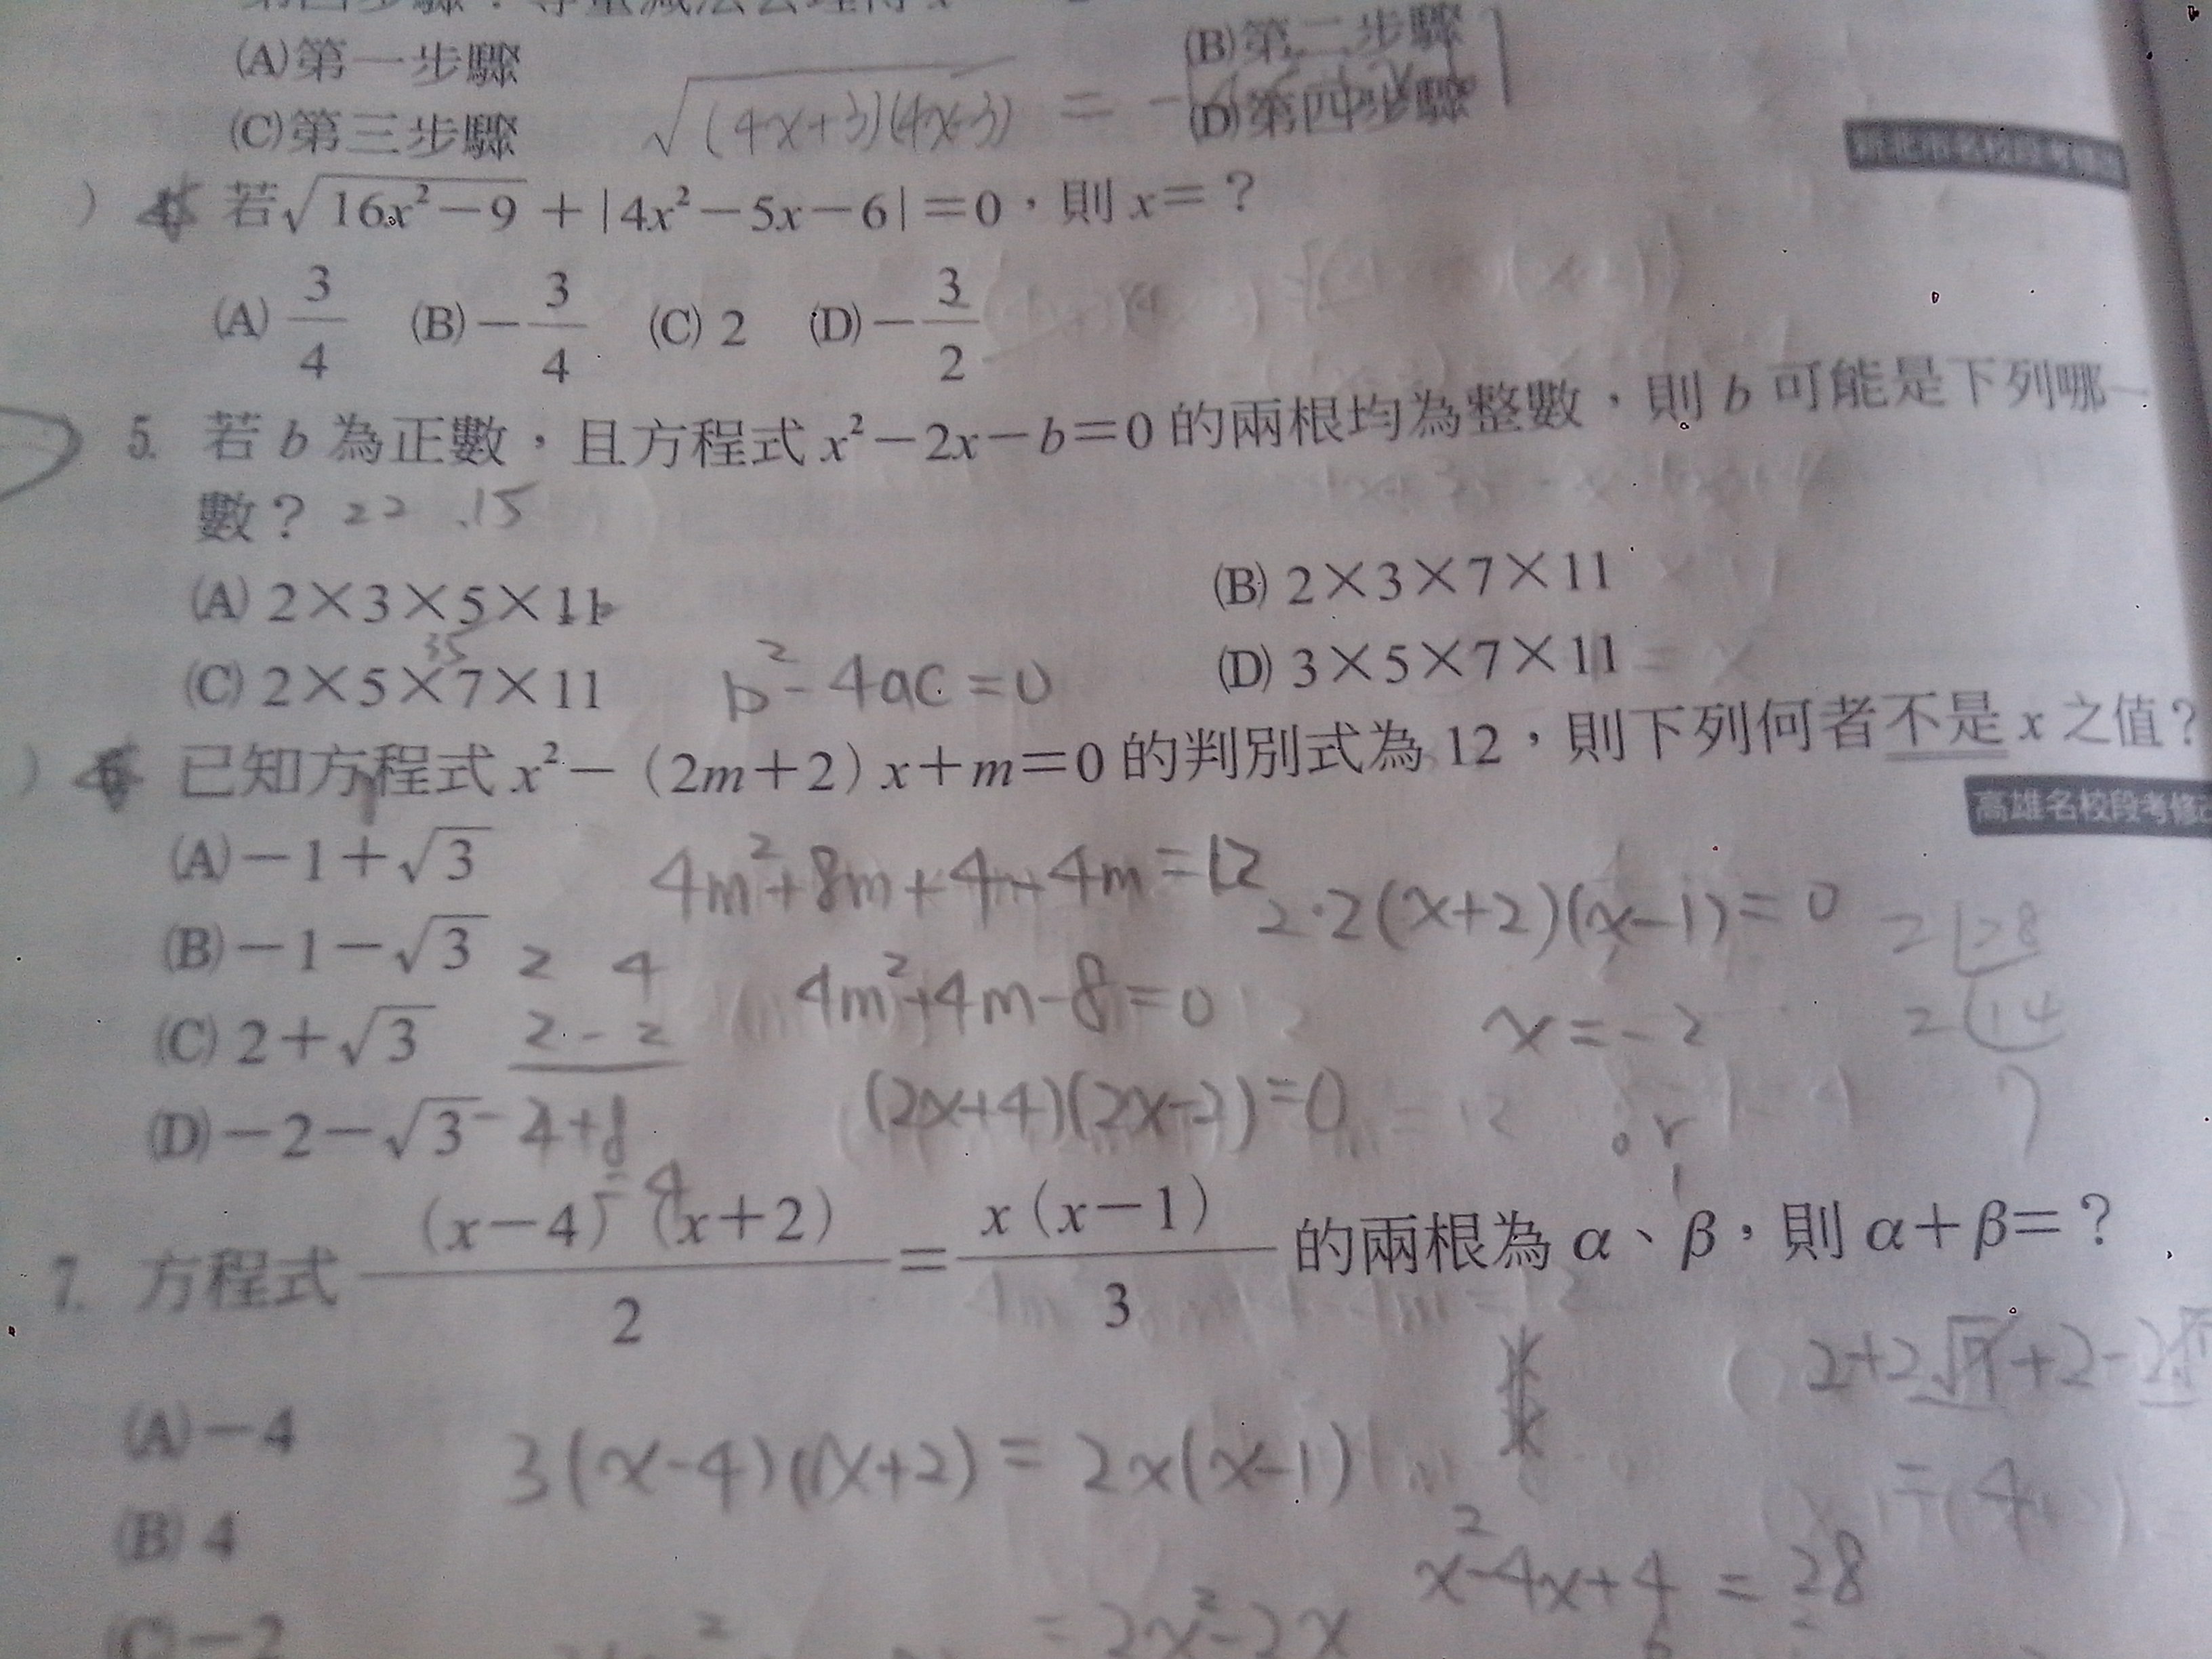 (A)第一步驟
(B)第二步驟
(C)第三步驟
(D)第四步驟
√(4x+3)(4x-3) =
若√16x²-9 + |4x²-5x-6| =0,則 x=?
(A) 3/4 (B) -3/4 (C) 2 (D) -3/2
5. 若 b 為正數,且方程式 x²-2x-b=0 的兩根均為整數,則 b 可能是下列哪一
數? 22 .15
(A) 2×3×5×11
(B) 2×3×7×11
35
(C) 2×5×7×11
(D) 3×5×7×11
b²-4ac=0
已知方程式 x²-(2m+2)x+m=0 的判別式為 12,則下列何者不是 x 之值?
高雄名校段考修
(A) -1+√3
4m²+8m+4-4m=12
2·2(x+2)(x-1)=0
(B) -1-√3
2 4
4m²+4m-8=0
x=-2
2 28
(C) 2+√3
2 -2
2 14
7
(D) -2-√3
-4+8
=4
(2x+4)(2x-2)=0
or
1
7. 方程式 (x-4)(x+2)/2 = x(x-1)/3 的兩根為 α、β,則 α+β=?
(A) -4
3(x-4)(x+2)=2x(x-1)
= 4
(B) 4
x²-4x+4=28
(C) -2
=2x²-2x